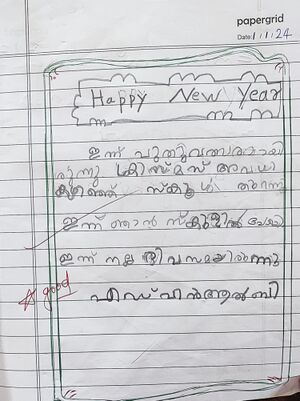 papergrid
Date: 1/1/24
Happy New Year
ഇന്ന് പുതുവത്സരമായി
രുന്നു ക്രിസ്മസ് അവധി
കഴിഞ്ഞ് സ്കൂൾ തുറന്നു
ഇന്ന് ഞാൻ സ്കൂളിൽ പോയി
ഇന്ന് നല്ല ദിവസമായിരുന്നു
good
എഡ്വിൻആൽബി